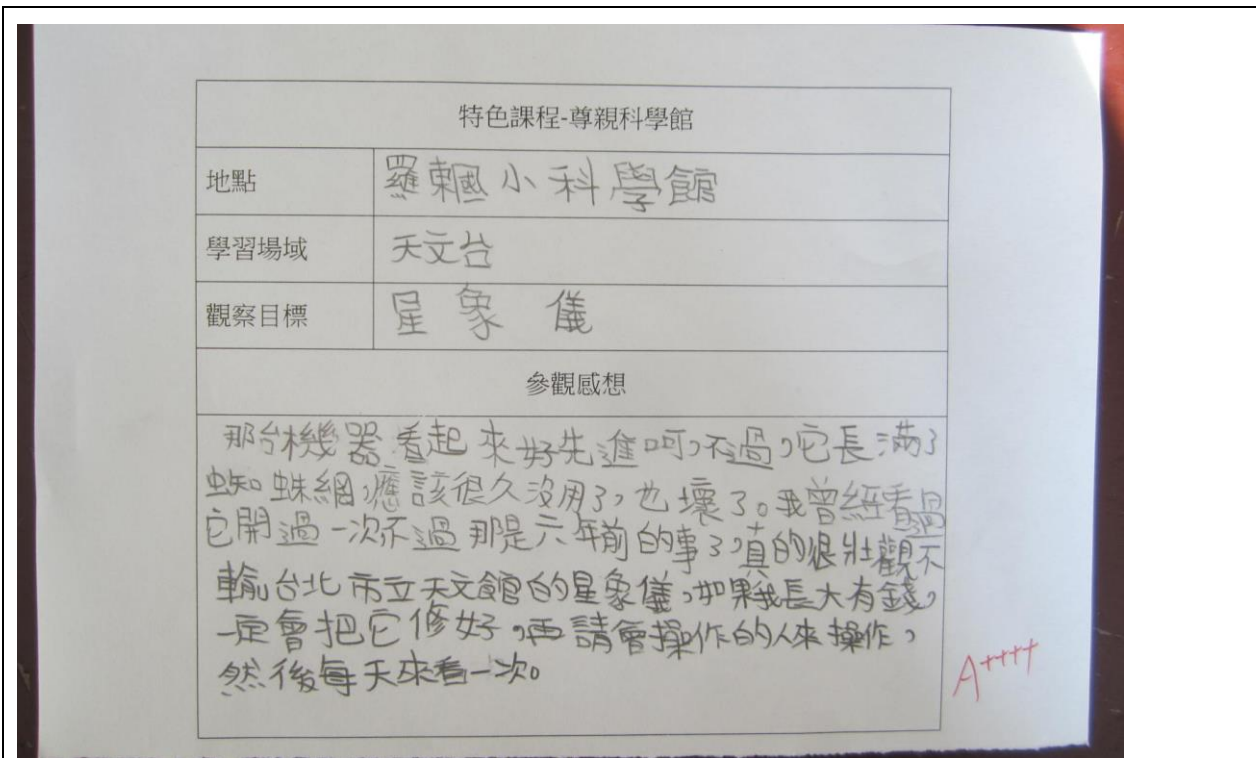 特色課程-尊親科學館
地點 羅東國小科學館
學習場域 天文台
觀察目標 星象儀
參觀感想
那台機器看起來好先進呵,不過,它長滿了
蜘蛛網,應該很久沒用了,也壞了。我曾經看過
它開過一次不過那是六年前的事了,真的很壯觀不
輸台北市立天文館的星象儀,如果我長大有錢,
一定會把它修好,再請會操作的人來操作,
然後每天來看一次。
A++++